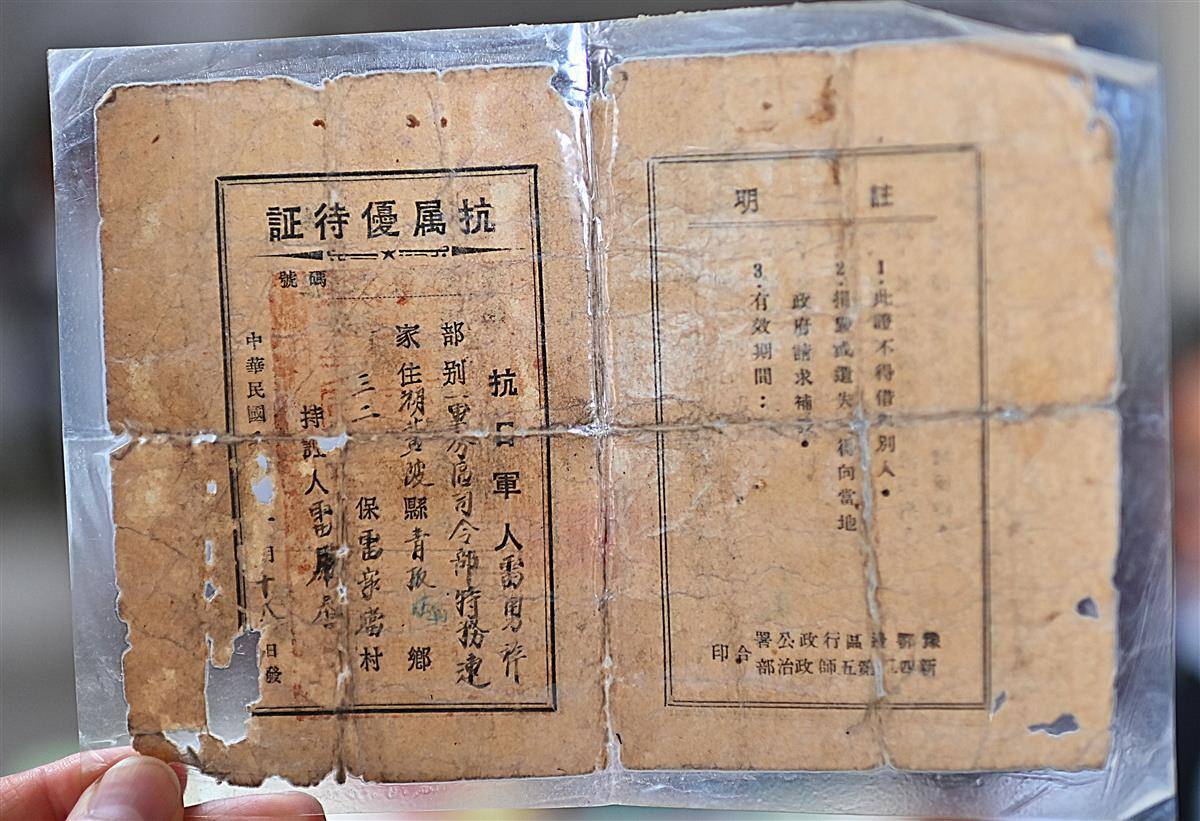 抗属優待証
號碼
抗日軍人雷勇
部别一軍分區司令部特務連
家住黄陂縣青鄉
三二保雷家村
持證人雷
中華民國月十八日發
註明
1.此證不得借與別人。
2.損毀或遺失得向當地
政府請求補。
3.有效期間：
豫鄂邊區行政公署
新四第五師政治部
合印